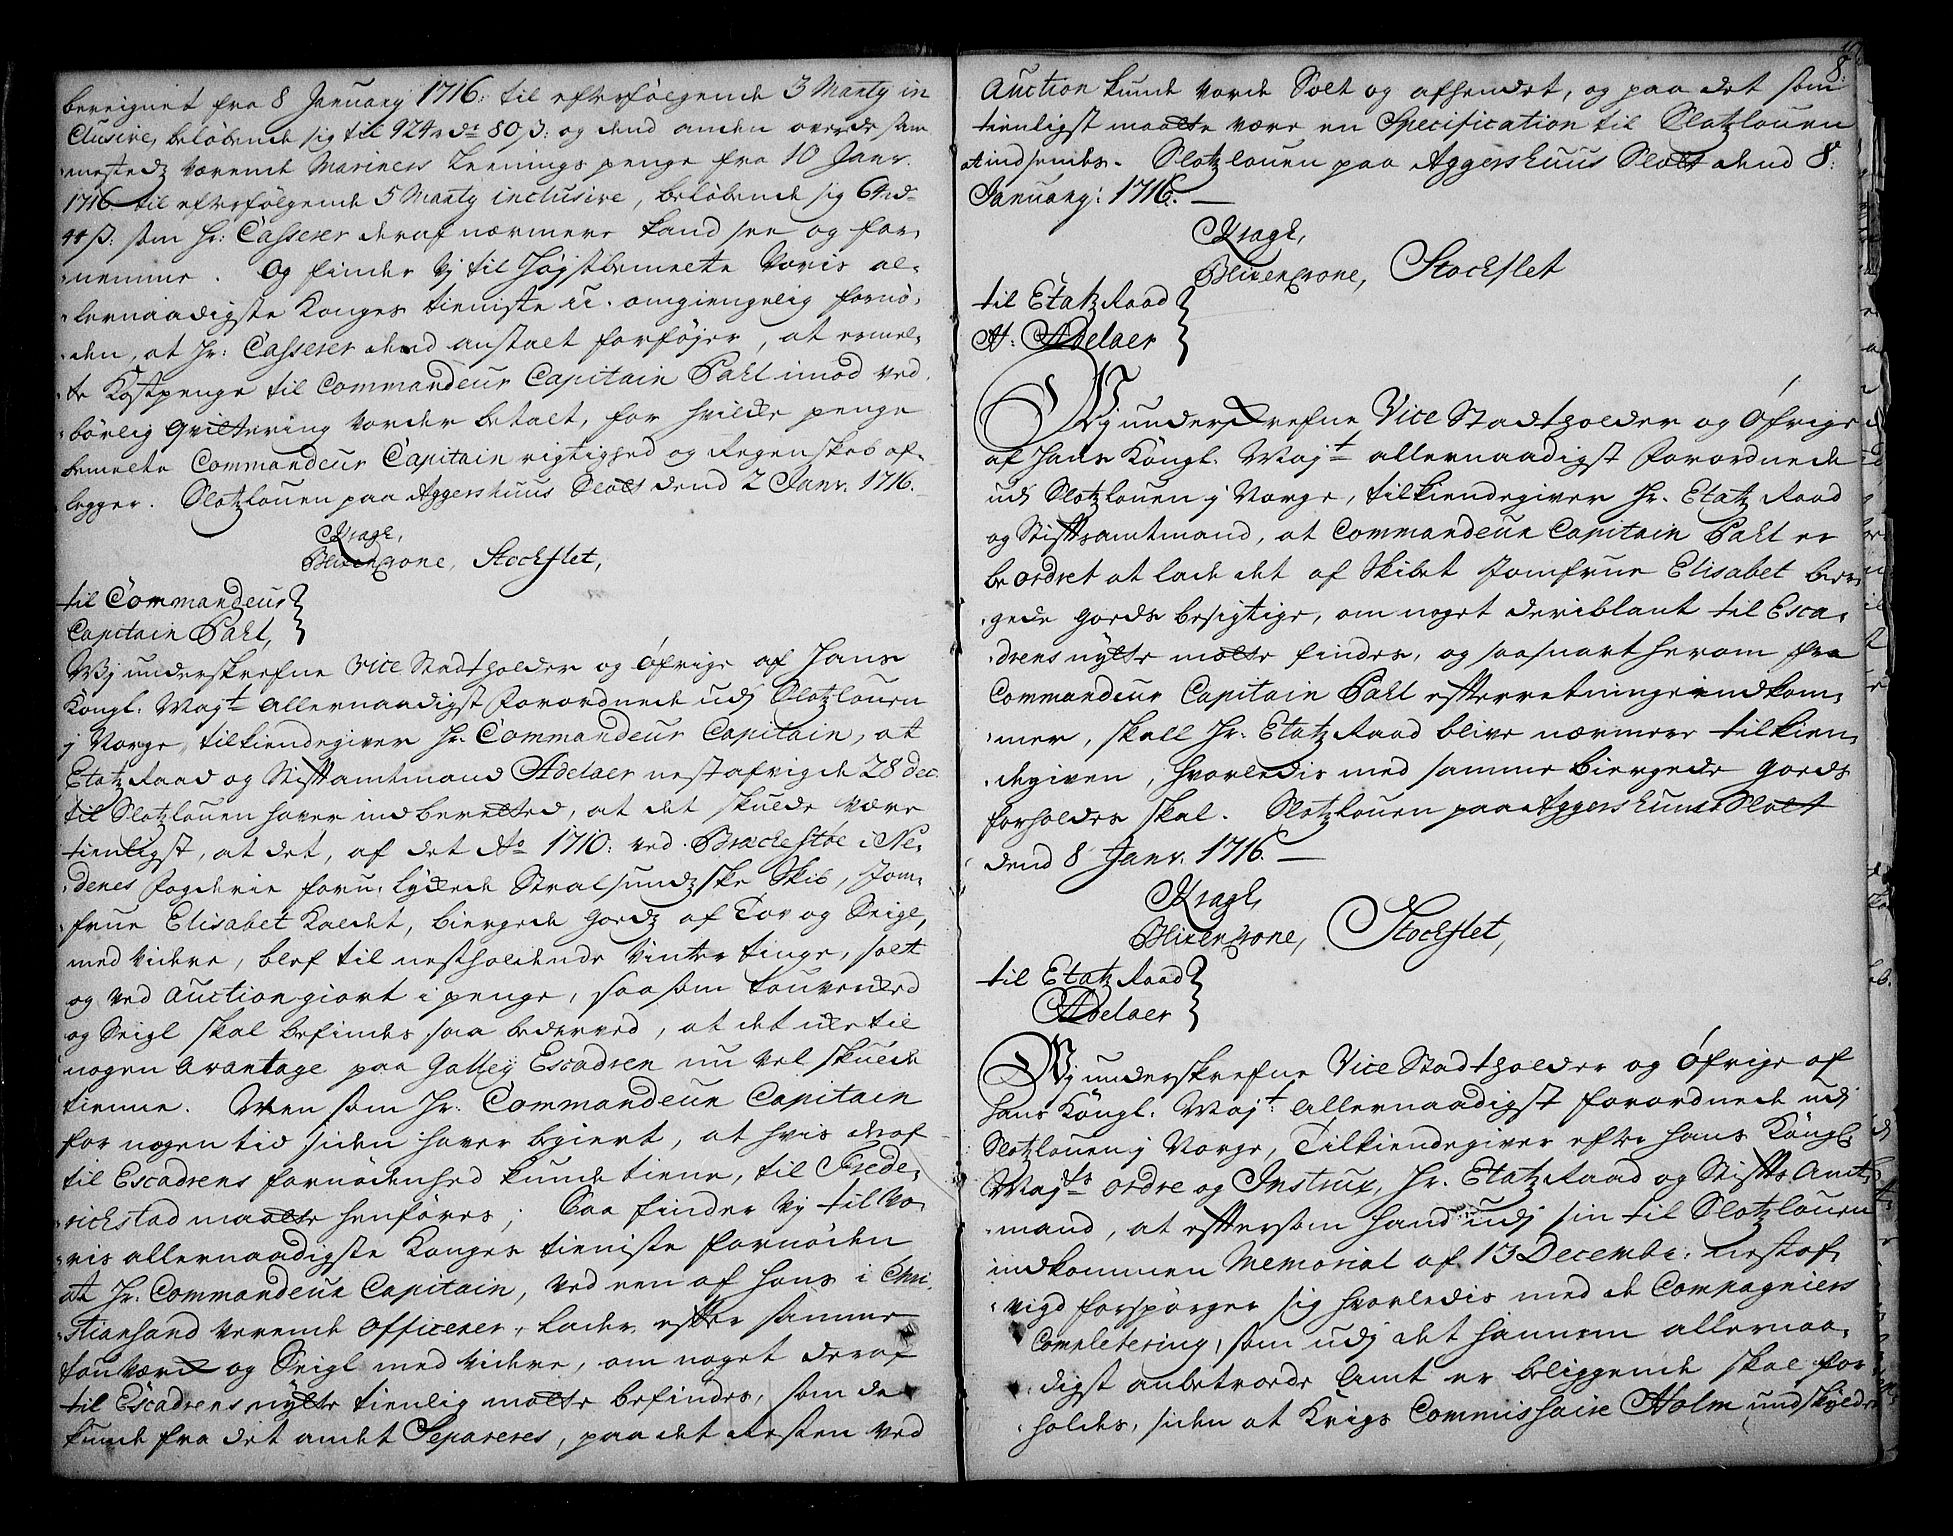 bereignet fra 8 January 1716: til efterfølgende 3 Marty in
clusive, beløbende sig til 924 rdr 80 ß: og dend anden ovende sam
mestedz værende Mariners Leenings penge fra 10 Janr.
1716. til efterfølgende 5 Marty inclusive, beløbende sig 64 rd
44 ß: som Hr: Casserer deraf nærmere kand see og for,
nemme. Og finder Vj til Højstbemelte Voris al,
lernaadigste Konges tieniste u-omgiengelig fornø,
den, at Hr: Casserer dend anstalt forføjer, at ermel,
te Kostpenge til Commandeur Capitain Pahl imod ved,
børlig Qvittering vorder betalt, for hvilcke penge
bemelte Commandeur Capitain rigtighed og Regenskab af,
legger. Slotzlouen paa Aggershuus Slott dend 2 Janr. 1716.
Kragh,
Blixencrone, Stockflet,
til Commandeur
Capitain Pahl,
Wj underskrefne Vice Stadtholder og Øfrige af Hans
Kongl. Mayt. Allernaadigst Forordnede udj Slotzlouen
j Norge, tilkiendegiver Hr. Commandeur Capitain, at
Etatz Raad og Stiftamtmand Adelaer nestafvigde 28 dec.
til Slotzlouen haver indberetted, at det skulde være
tienligst, at det, af det Ao 1710: ved Brackestøe i Ne,
denes Fogderie foru-lyckede Stralsundsche Skib, Jom,
frue Elisabet Kaldet, biergede Godz af Tov og Seigl,
med videre, blef til nestholdende Vinter tinge, solt
og ved Auction giort i penge, saasom touverckit
og Seigl skal befindes saa bederved, at det icke til
nogen avantage paa Galley Escadren nu vel skulde
tienne. Men som Hr: Commandeur Capitain
for nogen tid siden haver begiert, at hvis deraf
til Escadrens fornødenhed kunde tiene, til Frede,
richstad maatte henføres; Saa finder Vj til Vo,
ris allernaadigste Konges tieniste fornøden
at Hr: Commandeur Capitain, ved een af hans i Chri,
stiansand værende Officerer, lader efftersee samme
touværck og Seigl med videre, om noget deraf
til Escadrens nytte tienlig motte befindes, som da
kunde fra det andet Separeres, paa det Resten ved
8.
Auction kunde vorde Solt og afhendet, og paa det som
tienligst maatte være en Specification til Slotzlouen
at indsendes. Slotzlouen paa Aggershuus Slott dend 8:
January: 1716.
Kragh,
Blixencrone, Stockflet
til Etatz Raad
H: Adelaer
Wj underskrefne Vice Stadtholder og Øfrige
af Hans Kongl. Mayt allernaadigst Forordnede
udj Slotzlouen j Norge, tilkiendegiver Hr. Etatz Raad
og Stiftsamtmand, at Commandeur Capitain Pahl er
beordret at lade det af Skibet Jomfrue Elisabet ber,
gede Gods besigtige, om noget deriblant til Esca,
drens nytte motte findes, og saasnart herom fra
Commandeur Capitain Pahl efterretninge indkom,
mer, skall Hr. Etatz Raad blive nærmere tilkien,
degiven, hvorledis med samme biergede Gods
forholdes skal. Slotzlouen paa Aggershuus Slott
dend 8 Janr. 1716.
Kragh,
Blixencrone, Stockflet,
til Etatz Raad
Adelaer
Wj underskrefne Vice Stadtholder og Øfrige af
Hans Kongl. Mayt: Allernaadigst forordnede udj
Slotzlouen j Norge, Tilkiendegiver efter Hans Kongl.
Mayts ordre og Instrux, Hr. Etatz Raad og Stifts Amt,
mand, at eftersom Hand udj sin til Slotzlouen
indkommen Memorial af 13 Decembr: nestaf,
vigd forspørger sig hvorledis med de Compagniers
Completering, som udj det Hannem allernaa,
digst anbetroede Amt er beliggende skal for
holdes, siden at Krigs Commissaire Holm undskylder